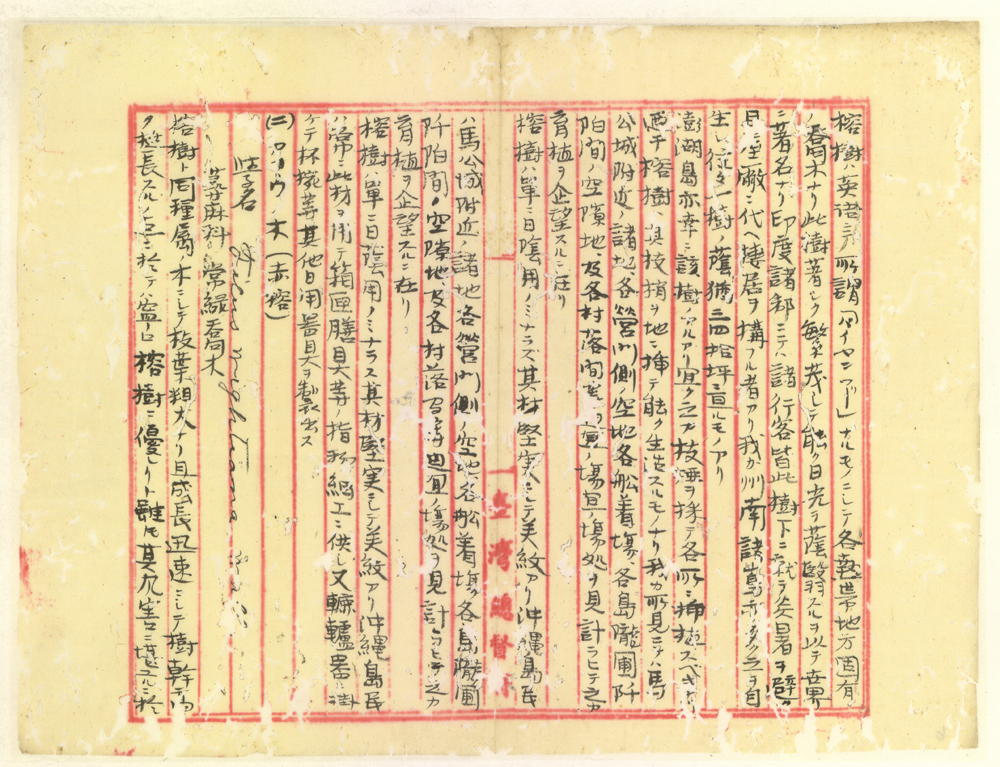 榕樹ハ英語ニ所謂「バイヤンツリー」ナルモノニシテ各熱帯地方固有ノ
喬木ナリ此樹著シク繁茂シテ能ク日光ヲ蔭翳スルヲ以テ世界
ニ著名ナリ印度諸部ニテハ諸行客皆此樹下ニ就テ炎暑ヲ避ケ
且ニ座廠ニ代ヘ棲居ヲ構フル者アリ我カ州南諸島亦多ク之ヲ自
生シ往々一樹ノ蔭猶三四拾坪ニ亘ルモノアリ
澎湖島亦幸ニ該樹ノアルアリ宜ク之カ枝ヲ採テ各所ニ挿植スベキナリ
榕樹ハ其枝梢ヲ地ニ挿テ能ク生活スルモノナリ我カ所見ニテハ馬
公城附近ノ諸地各營門側ノ空地各船着場、各島隴圃阡
陌間ノ空隙地、及各村落間ノ場処ヲ見計ラヒテ之カ
育植ヲ企望スルニ在リ
榕樹ハ單ニ日陰用ノミナラズ其材堅実ニシテ美紋アリ沖縄島民
ハ馬公城附近ノ諸地各營門側ノ空地各船着場各島隴圃
阡陌間ノ空隙地、及各村落ノ場処ヲ見計ラヒテ之カ
育植ヲ企望スルニ在リ
榕樹ハ單ニ日陰用ノミナラス其材堅実ニシテ美紋アリ沖縄島民
ハ常ニ此材ヲ用テ箱匣膳具等ノ指物細工ニ供シ又轆轤器ニ掛
ケテ杯椀等其他日用器具ヲ製出ス
(二) アコウノ木(赤榕)
学名 Ficus Wightiana
蕁麻科 常緑喬木
榕樹ト同種属ノ木ニシテ枝葉粗大ナリ且成長迅速ニシテ樹幹高
ク挺長スルノ点ニ於テハ榕樹ニ優レリト雖モ其風害ニ堪ユルニ於
臺灣總督府